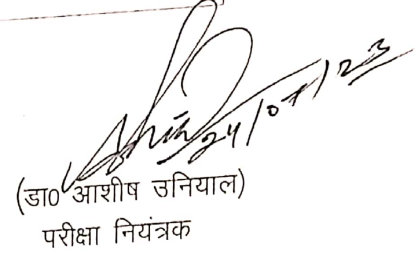 24/07/23
(डा० आशीष उनियाल)
परीक्षा नियंत्रक